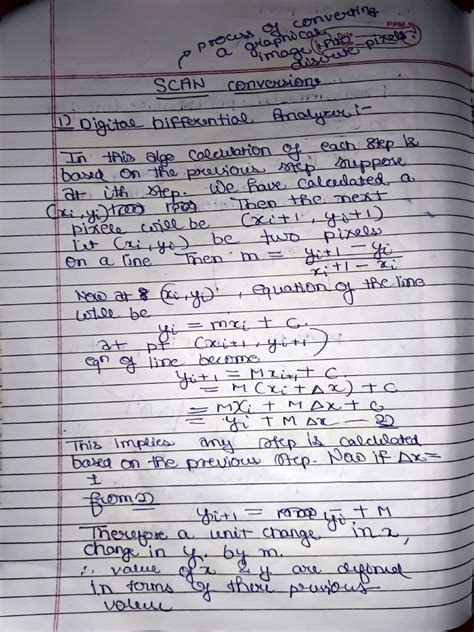 process of converting
a graphical
image into
discrete pixels.
PPM
SCAN conversions
1) Digital Differential Analyzer :-
In this algo calculation of each step is
based on the previous step suppose
at ith step. We have calculated a
(xi, yi) Then the next
pixele will be (xi+1, yi+1)
let (xi, yi) be two pixels
on a line Then m = yi+1 - yi / xi+1 - xi
Now at (xi, yi), equation of the line
will be
yi = mxi + c.
at pt (xi+1, yi+1)
eqn of line become
yi+1 = Mxi+1 + C
= M(xi + Δx) + C
= MXi + MΔx + C
= yi + MΔx — 2)
This implies any step is calculated
based on the previous step. Now if Δx =
1
from 2)
yi+1 = yi + M
Therefore a unit change in x,
change in y by m.
∴ value of x & y are defined
in terms of there previous
value